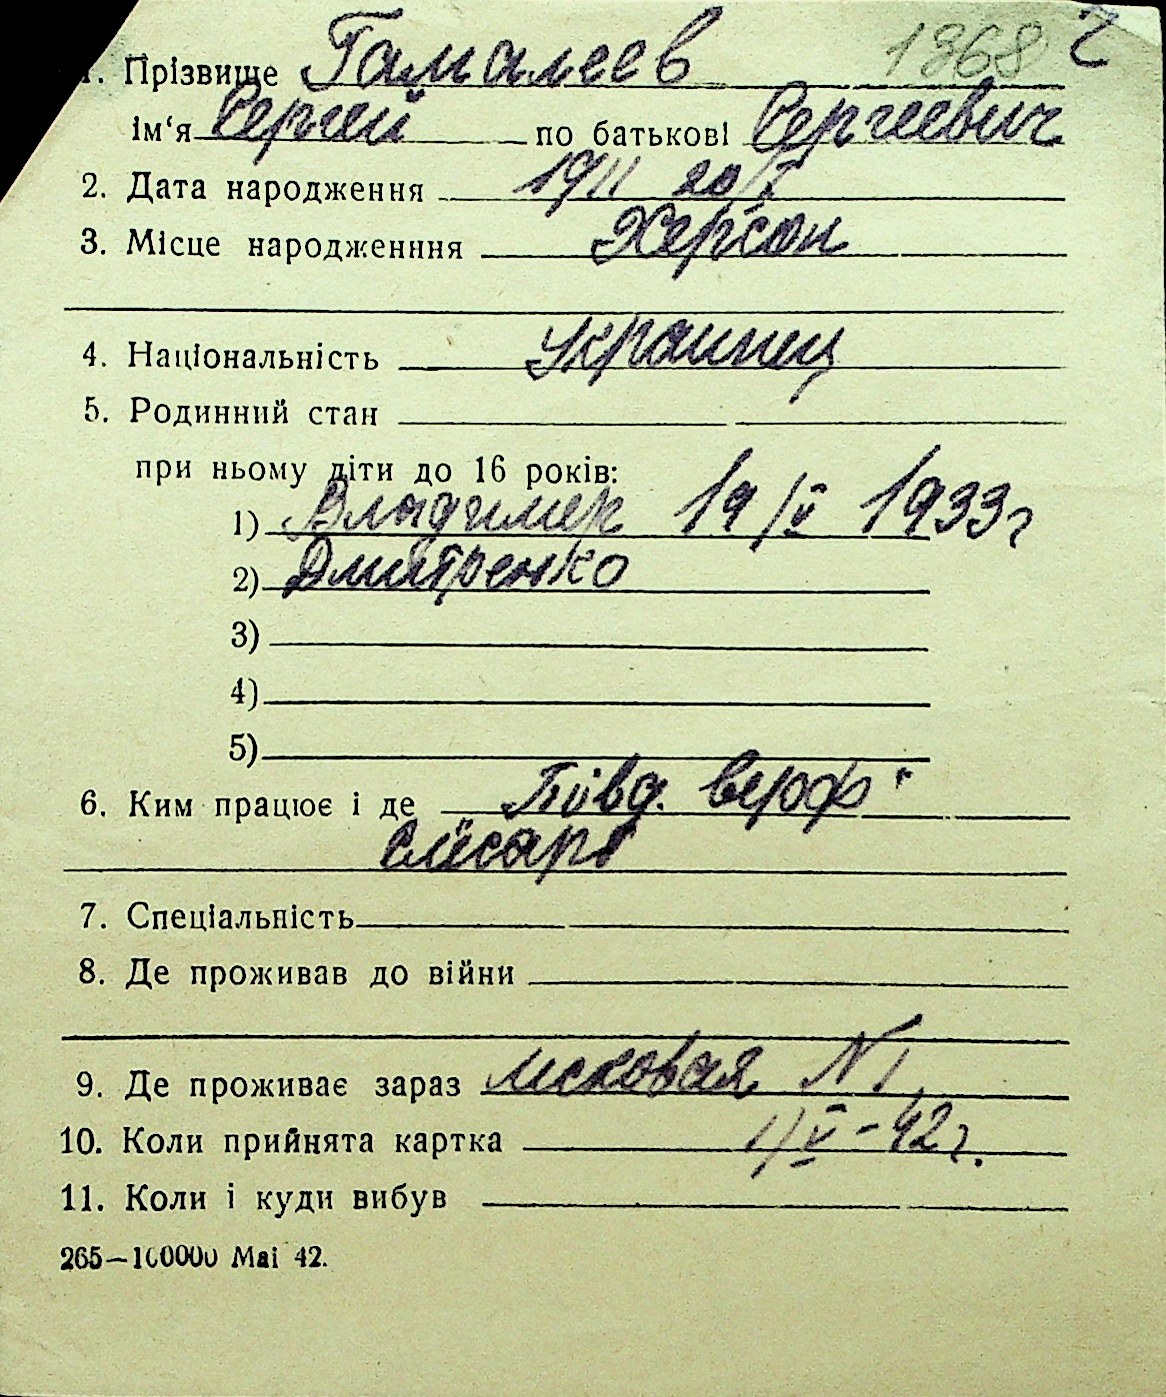 1368 2
1. Прізвище Гамалеев
ім‘я Сергей по батькові Сергеевич
2. Дата народження 1911 20/X
3. Місце народженння Херсон
4. Національність Украинец
5. Родинний стан
при ньому діти до 16 років:
1) Владимер 19/V 1933г
2) Дмитренко
3)
4)
5)
6. Ким працює і де Півд. верф
Слісарь
7. Спеціальність
8. Де проживав до війни
9. Де проживає зараз N 1
10. Коли прийнята картка 1/V-42г.
11. Коли і куди вибув
265—100000 Маі 42.